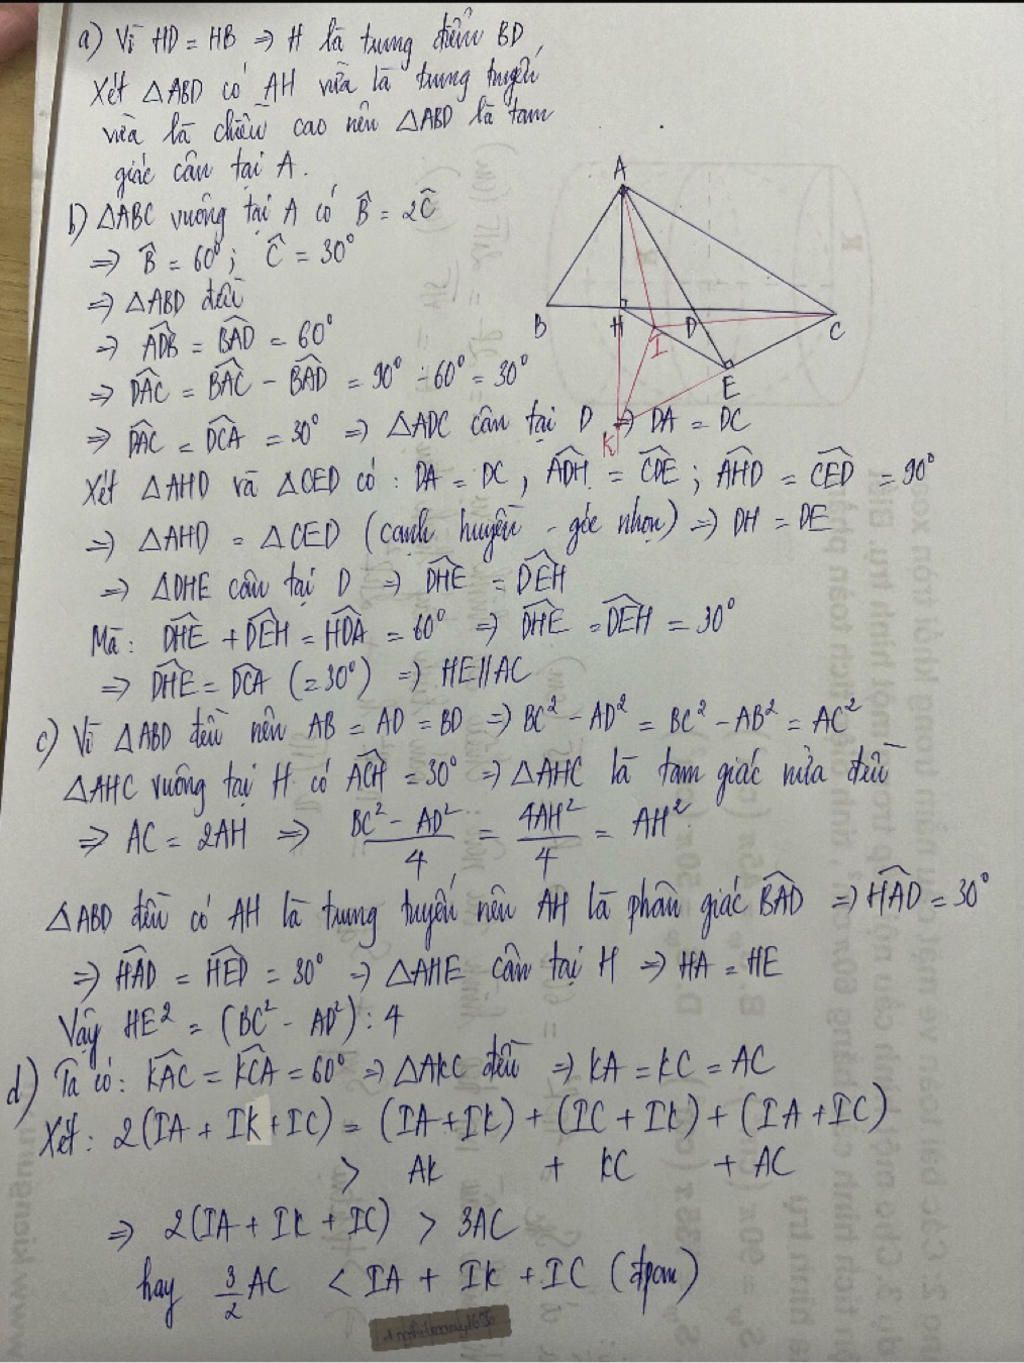 a) Vì HD = HB ⇒ H là trung điểm BD,
Xét △ABD có AH vừa là trung tuyến
vừa là chiều cao nên △ABD là tam
giác cân tại A.
b) △ABC vuông tại A có B̂ = 2Ĉ
⇒ B̂ = 60°; Ĉ = 30°
⇒ △ABD đều
⇒ ADB̂ = BAD̂ = 60°
⇒ DAĈ = BAĈ - BAD̂ = 90° - 60° = 30°
⇒ DAĈ = DCÂ = 30° ⇒ △ADC cân tại D ⇒ DA = DC
Xét △AHD và △CED có: DA = DC, ADĤ = CDÊ; AHD̂ = CED̂ = 90°
⇒ △AHD = △CED (cạnh huyền - góc nhọn) ⇒ DH = DE
⇒ △DHE cân tại D ⇒ DHÊ = DEĤ
Mà: DHÊ + DEĤ = HDÂ = 60° ⇒ DHÊ = DEĤ = 30°
⇒ DHÊ = DCÂ (= 30°) ⇒ HE//AC
c) Vì △ABD đều nên AB = AD = BD ⇒ BC² - AD² = BC² - AB² = AC²
△AHC vuông tại H có ACĤ = 30° ⇒ △AHC là tam giác nửa đều
⇒ AC = 2AH ⇒ (BC² - AD²)/4 = 4AH²/4 = AH²
△ABD đều có AH là trung tuyến nên AH là phân giác BAD̂ ⇒ HAD̂ = 30°
⇒ HAD̂ = HED̂ = 30° ⇒ △AHE cân tại H ⇒ HA = HE
Vậy HE² = (BC² - AD²) : 4
d) Ta có: KAĈ = KCÂ = 60° ⇒ △AKC đều ⇒ KA = KC = AC
Xét: 2(IA + IK + IC) = (IA + IK) + (IC + IK) + (IA + IC)
> AK + KC + AC
⇒ 2(IA + IK + IC) > 3AC
hay 3/2 AC < IA + IK + IC (đpcm)
A
B
H
I
D
C
E
K